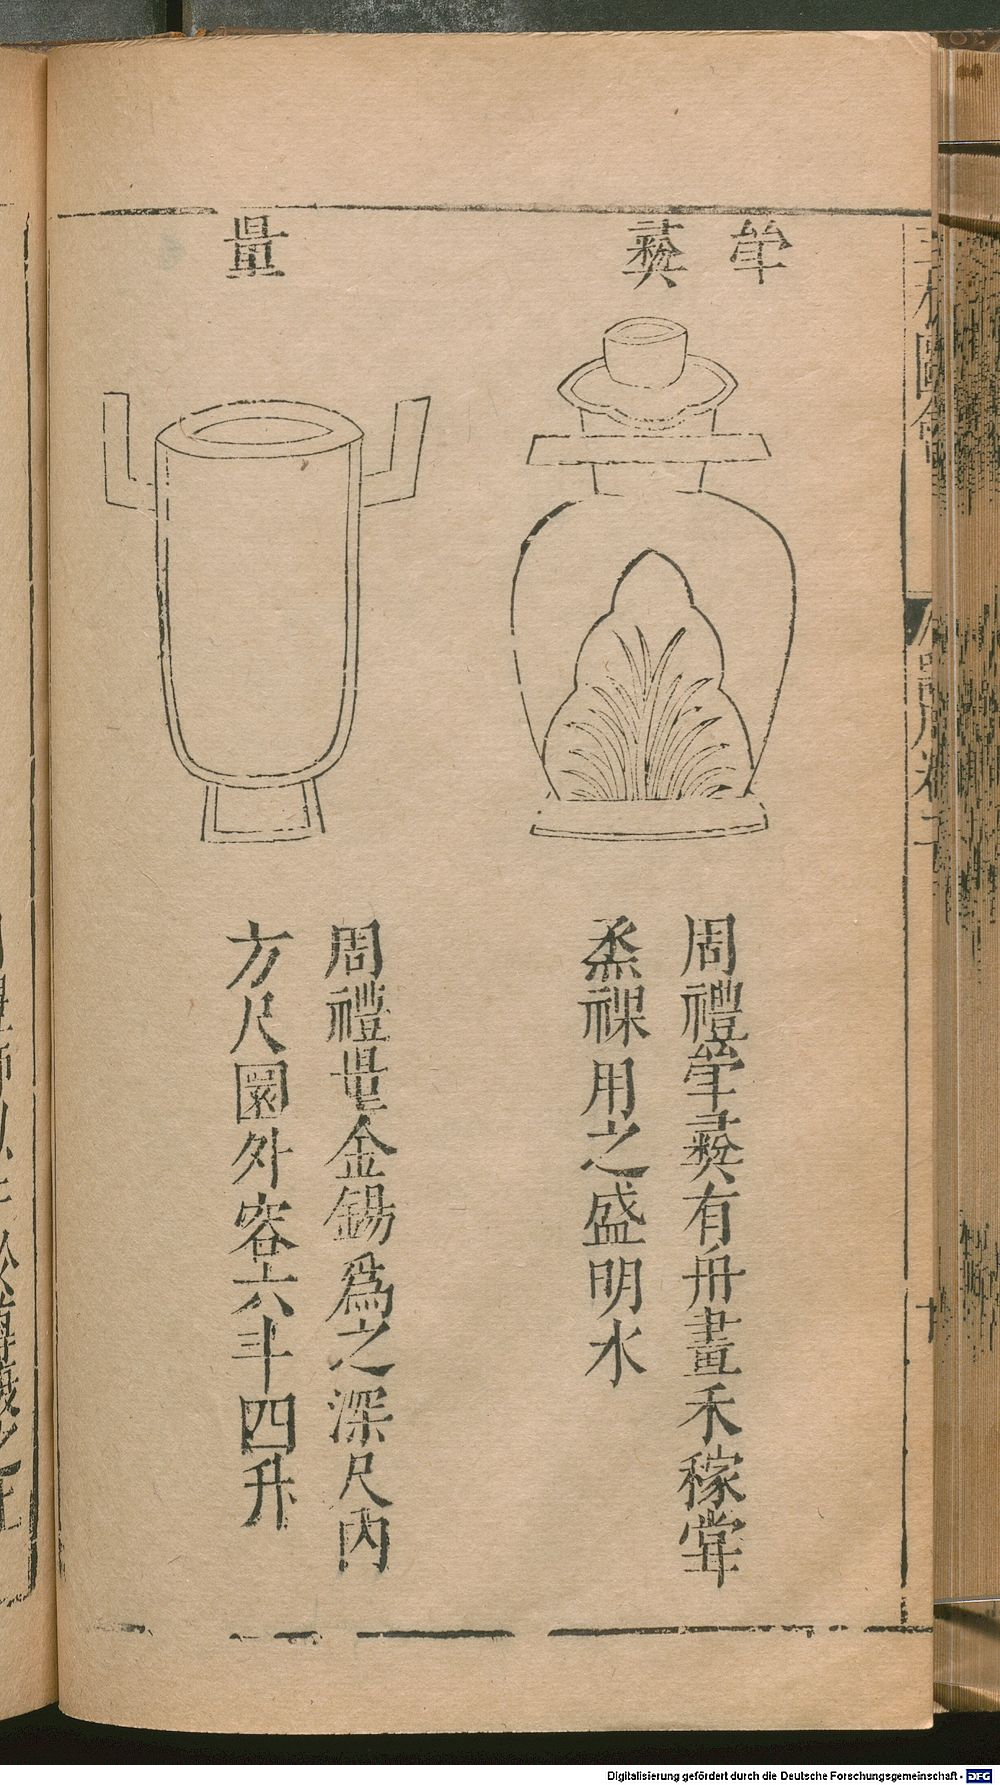 斝彞
周禮斝彞有舟畫禾稼嘗
烝祼用之盛明水
量
周禮量金錫爲之深尺內
方尺圜外容六斗四升
三才圖會
器用卷
Digitalisierung gefördert durch die Deutsche Forschungsgemeinschaft - DFG